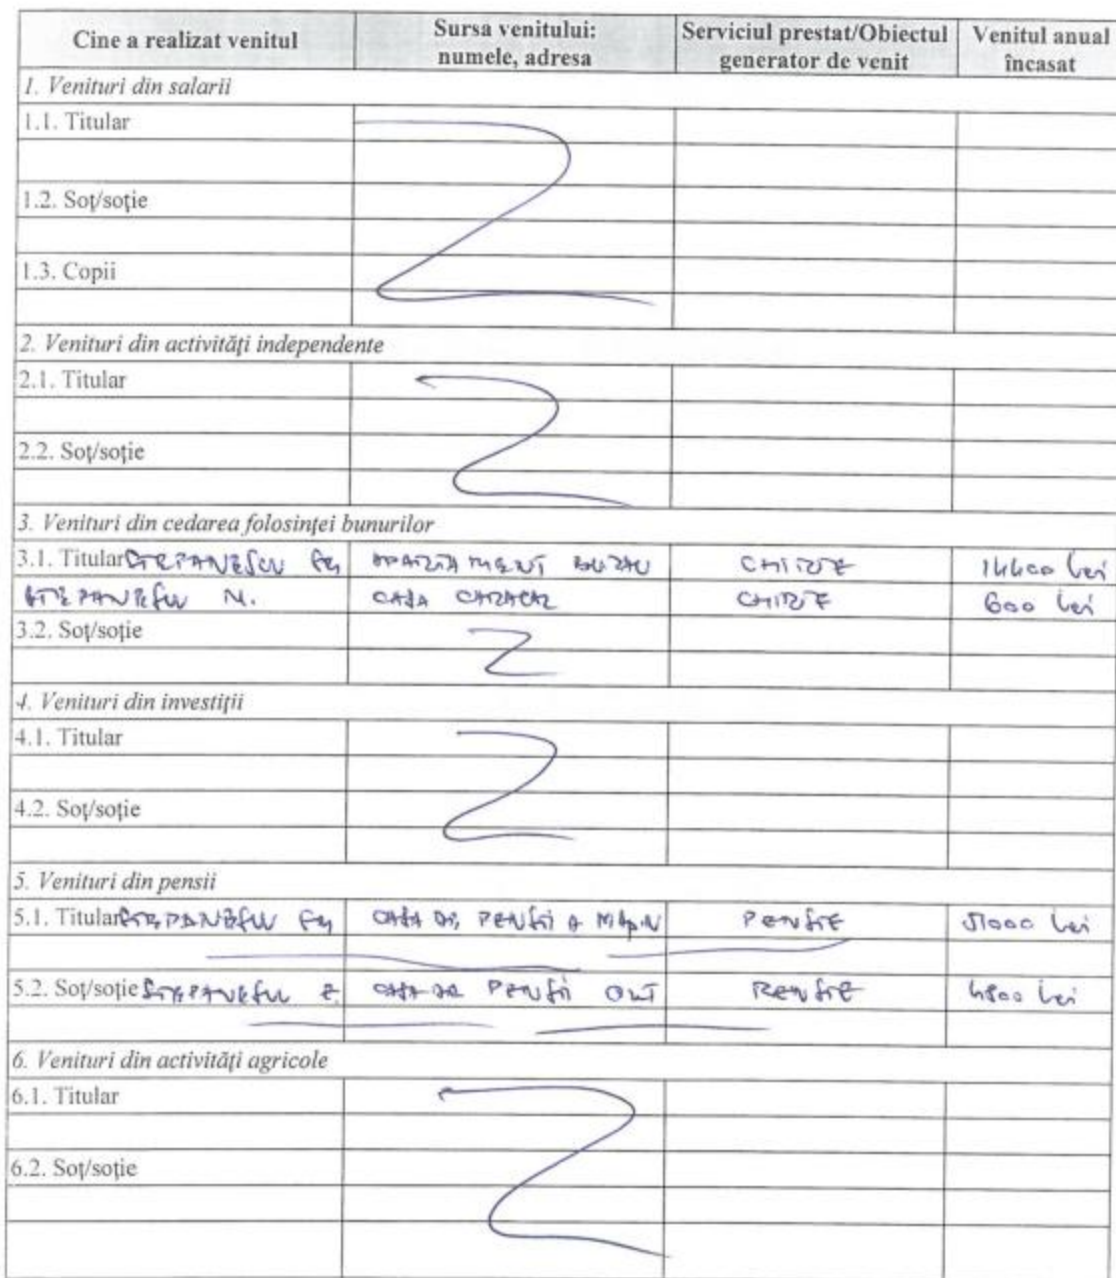 Cine a realizat venitul Sursa venitului: numele, adresa Serviciul prestat/Obiectul generator de venit Venitul anual încasat
1. Venituri din salarii
1.1. Titular
1.2. Soţ/soţie
1.3. Copii
2. Venituri din activităţi independente
2.1. Titular
2.2. Soţ/soţie
3. Venituri din cedarea folosinţei bunurilor
3.1. Titular APARTAMENT BUZAU CHIRIE 14400 lei
N. CASA CARACAL CHIRIE 600 lei
3.2. Soţ/soţie
4. Venituri din investiţii
4.1. Titular
4.2. Soţ/soţie
5. Venituri din pensii
5.1. Titular CASA DE PENSII A PENSIE 51000 lei
5.2. Soţ/soţie CASA DE PENSII OLT PENSIE 4800 lei
6. Venituri din activităţi agricole
6.1. Titular
6.2. Soţ/soţie